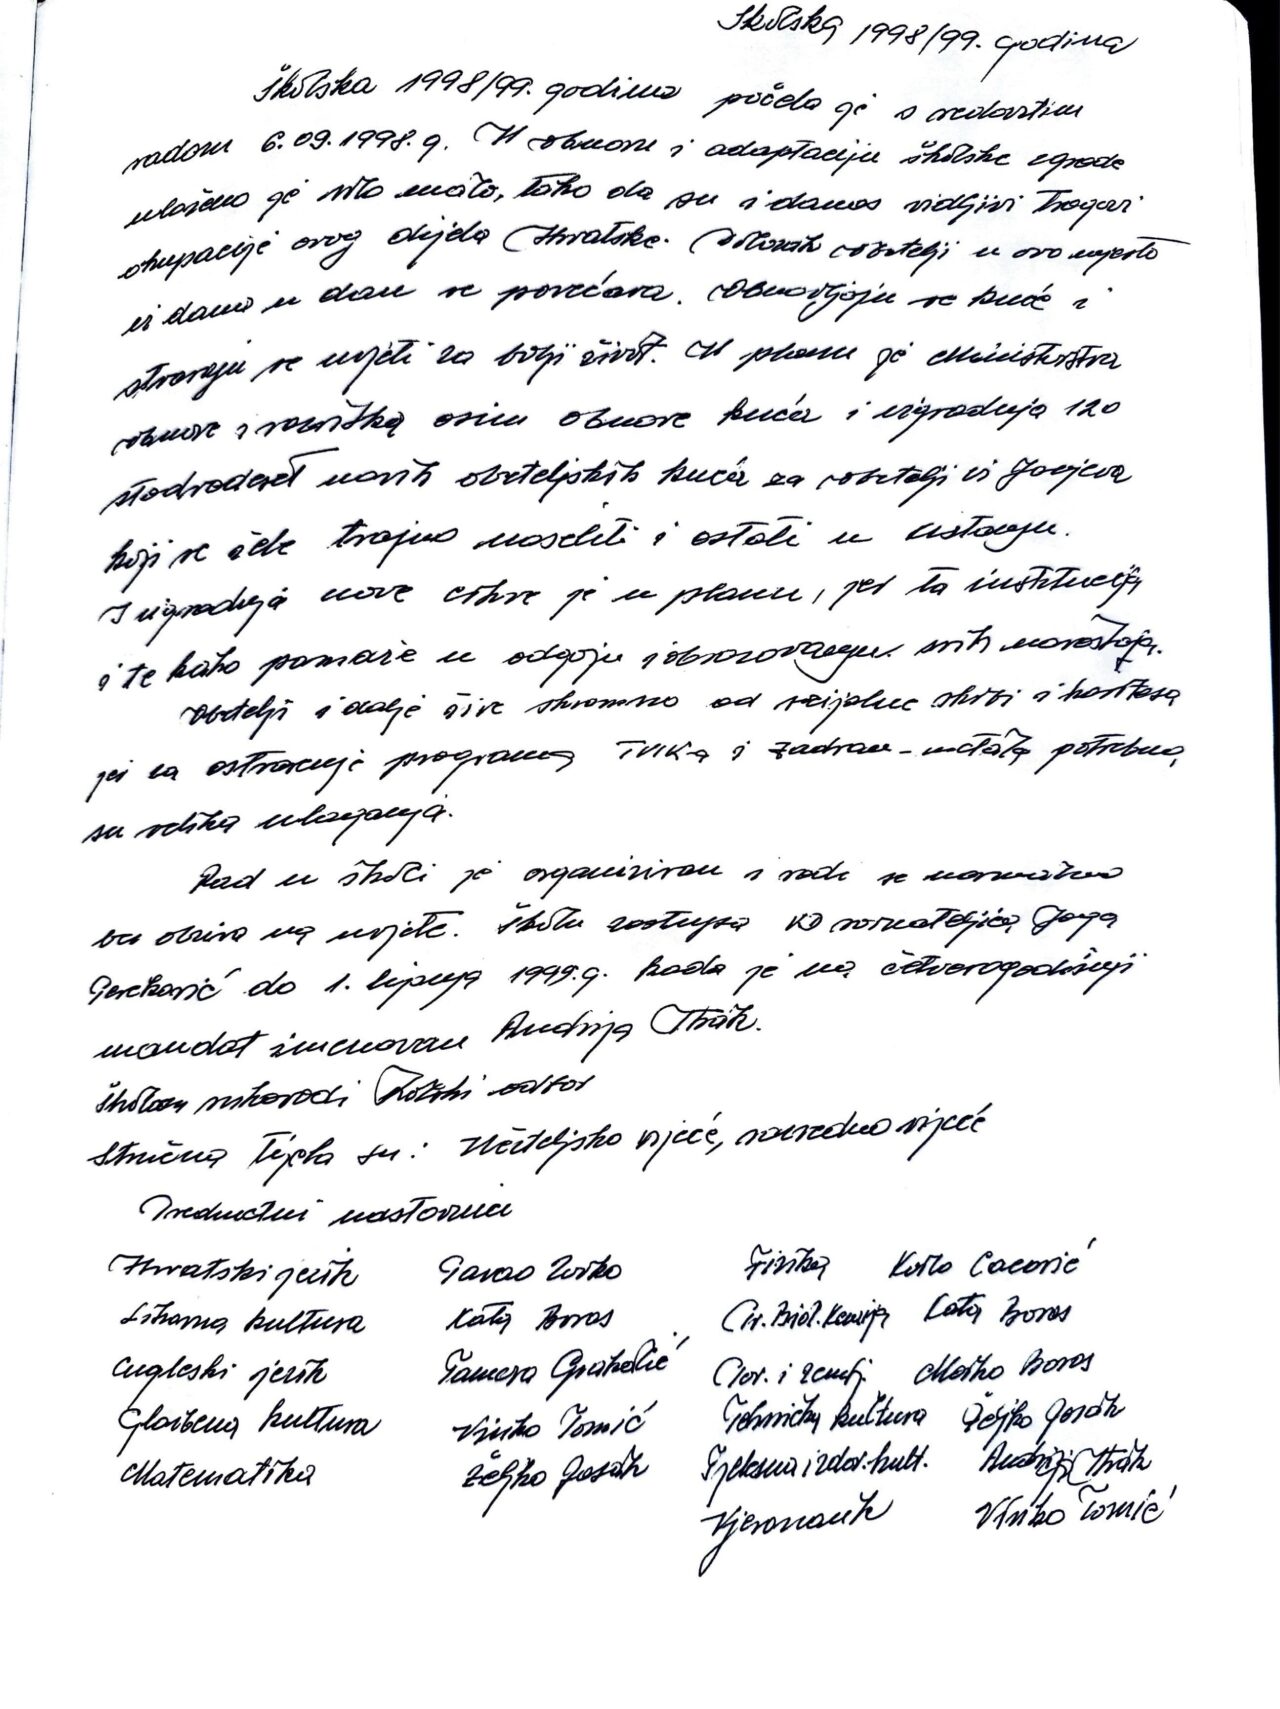 Školska 1998/99. godina
Školska 1998/99. godina počela je s redovitim
radom 6.09.1998.g. U obnovu i adaptaciju školske zgrade
uloženo je vrlo malo, tako da su i danas vidljivi tragovi
okupacije ovog dijela Hrvatske. obitelji u ovo mjesto
iz dana u dan se povećava. Obnavljaju se kuće i
stvaraju se uvjeti za bolji život. U planu je Ministarstva
obnove i razvitka osim obnove kuća i izgradnja 120
stodvadeset novih obiteljskih kuća za obitelji iz Janjeva
koji se žele trajno naseliti i ostati u Kistanju.
I izgradnja nove crkve je u planu, jer ta institucija
i te kako pomaže u odgoju i obrazovanju svih naraštaja.
Obitelji i dalje žive skromno od socijalne skrbi i karitasa
jer za ostvarenje programa TVIKa i Jadran-metala potrebna
su velika ulaganja.
Rad u školi je organiziran i radi se normalno
bez obzira na uvjete. Školu zastupa VD ravnateljica Jaga
do 1. lipnja 1999.g. kada je na četverogodišnji
mandat imenovan Andrija
Školom rukovodi Školski odbor
Stručna tijela su: Učiteljsko vijeće, razredno vijeće
Predmetni nastavnici
Hrvatski jezik Pavao Zorko Fizika Kata Cacović
Likovna kultura Kata Boros Pr. Biol. Kemija Kata Boros
Engleski jezik Tamara Grabalić Pov. i zemlj. Marko Boros
Glazbena kultura Vinko Tomić Tehnička kultura Željko Gosak
Matematika Željko Gosak Tjelesna i zdr. kult. Andrija
Vjeronauk Vinko Tomić